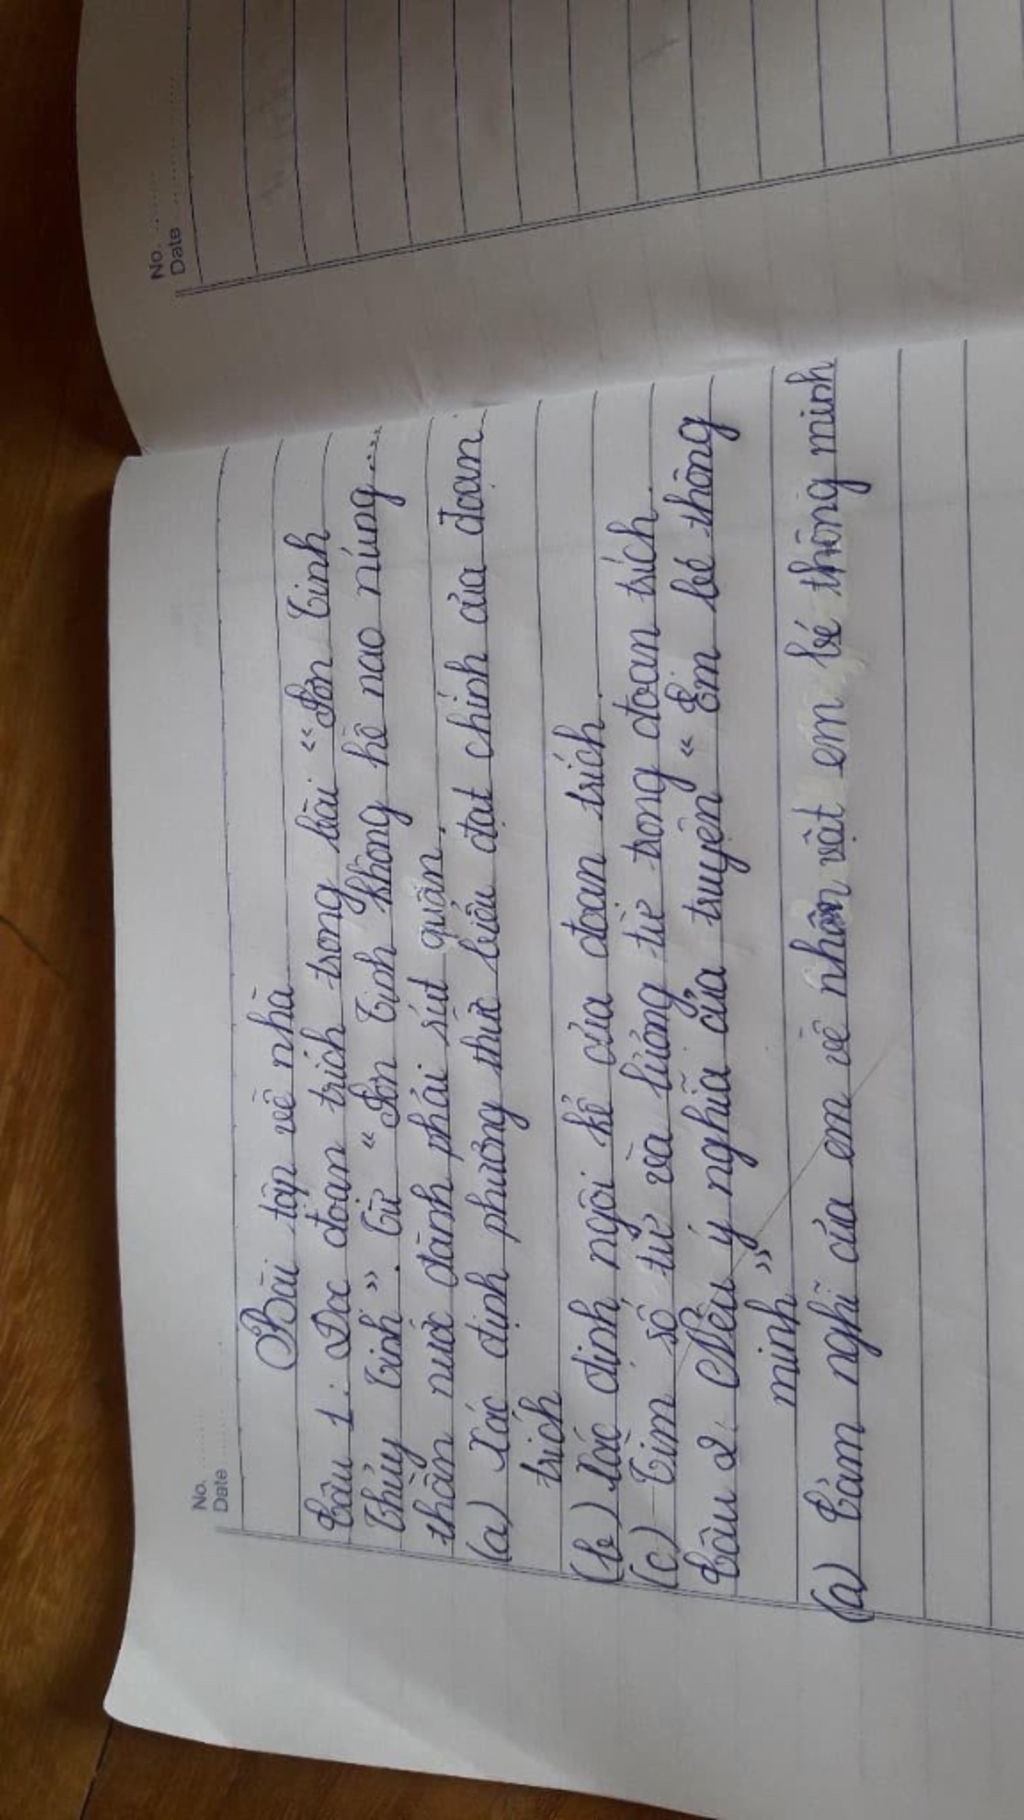 No. ..........
Date ....................
Bài tập về nhà
Câu 1: Đọc đoạn trích trong bài “Sơn Tinh
Thủy Tinh”. Từ “Sơn Tinh không hề nao núng...
thần nước đành phải rút quân.
(a) Xác định phương thức biểu đạt chính của đoạn
trích
(b) Xác định ngôi kể của đoạn trích
(c) Tìm số từ và lượng từ trong đoạn trích.
Câu 2. Nêu ý nghĩa của truyện “Em bé thông
minh”
(a) Cảm nghĩ của em về nhân vật em bé thông minh
No. ..........
Date ....................